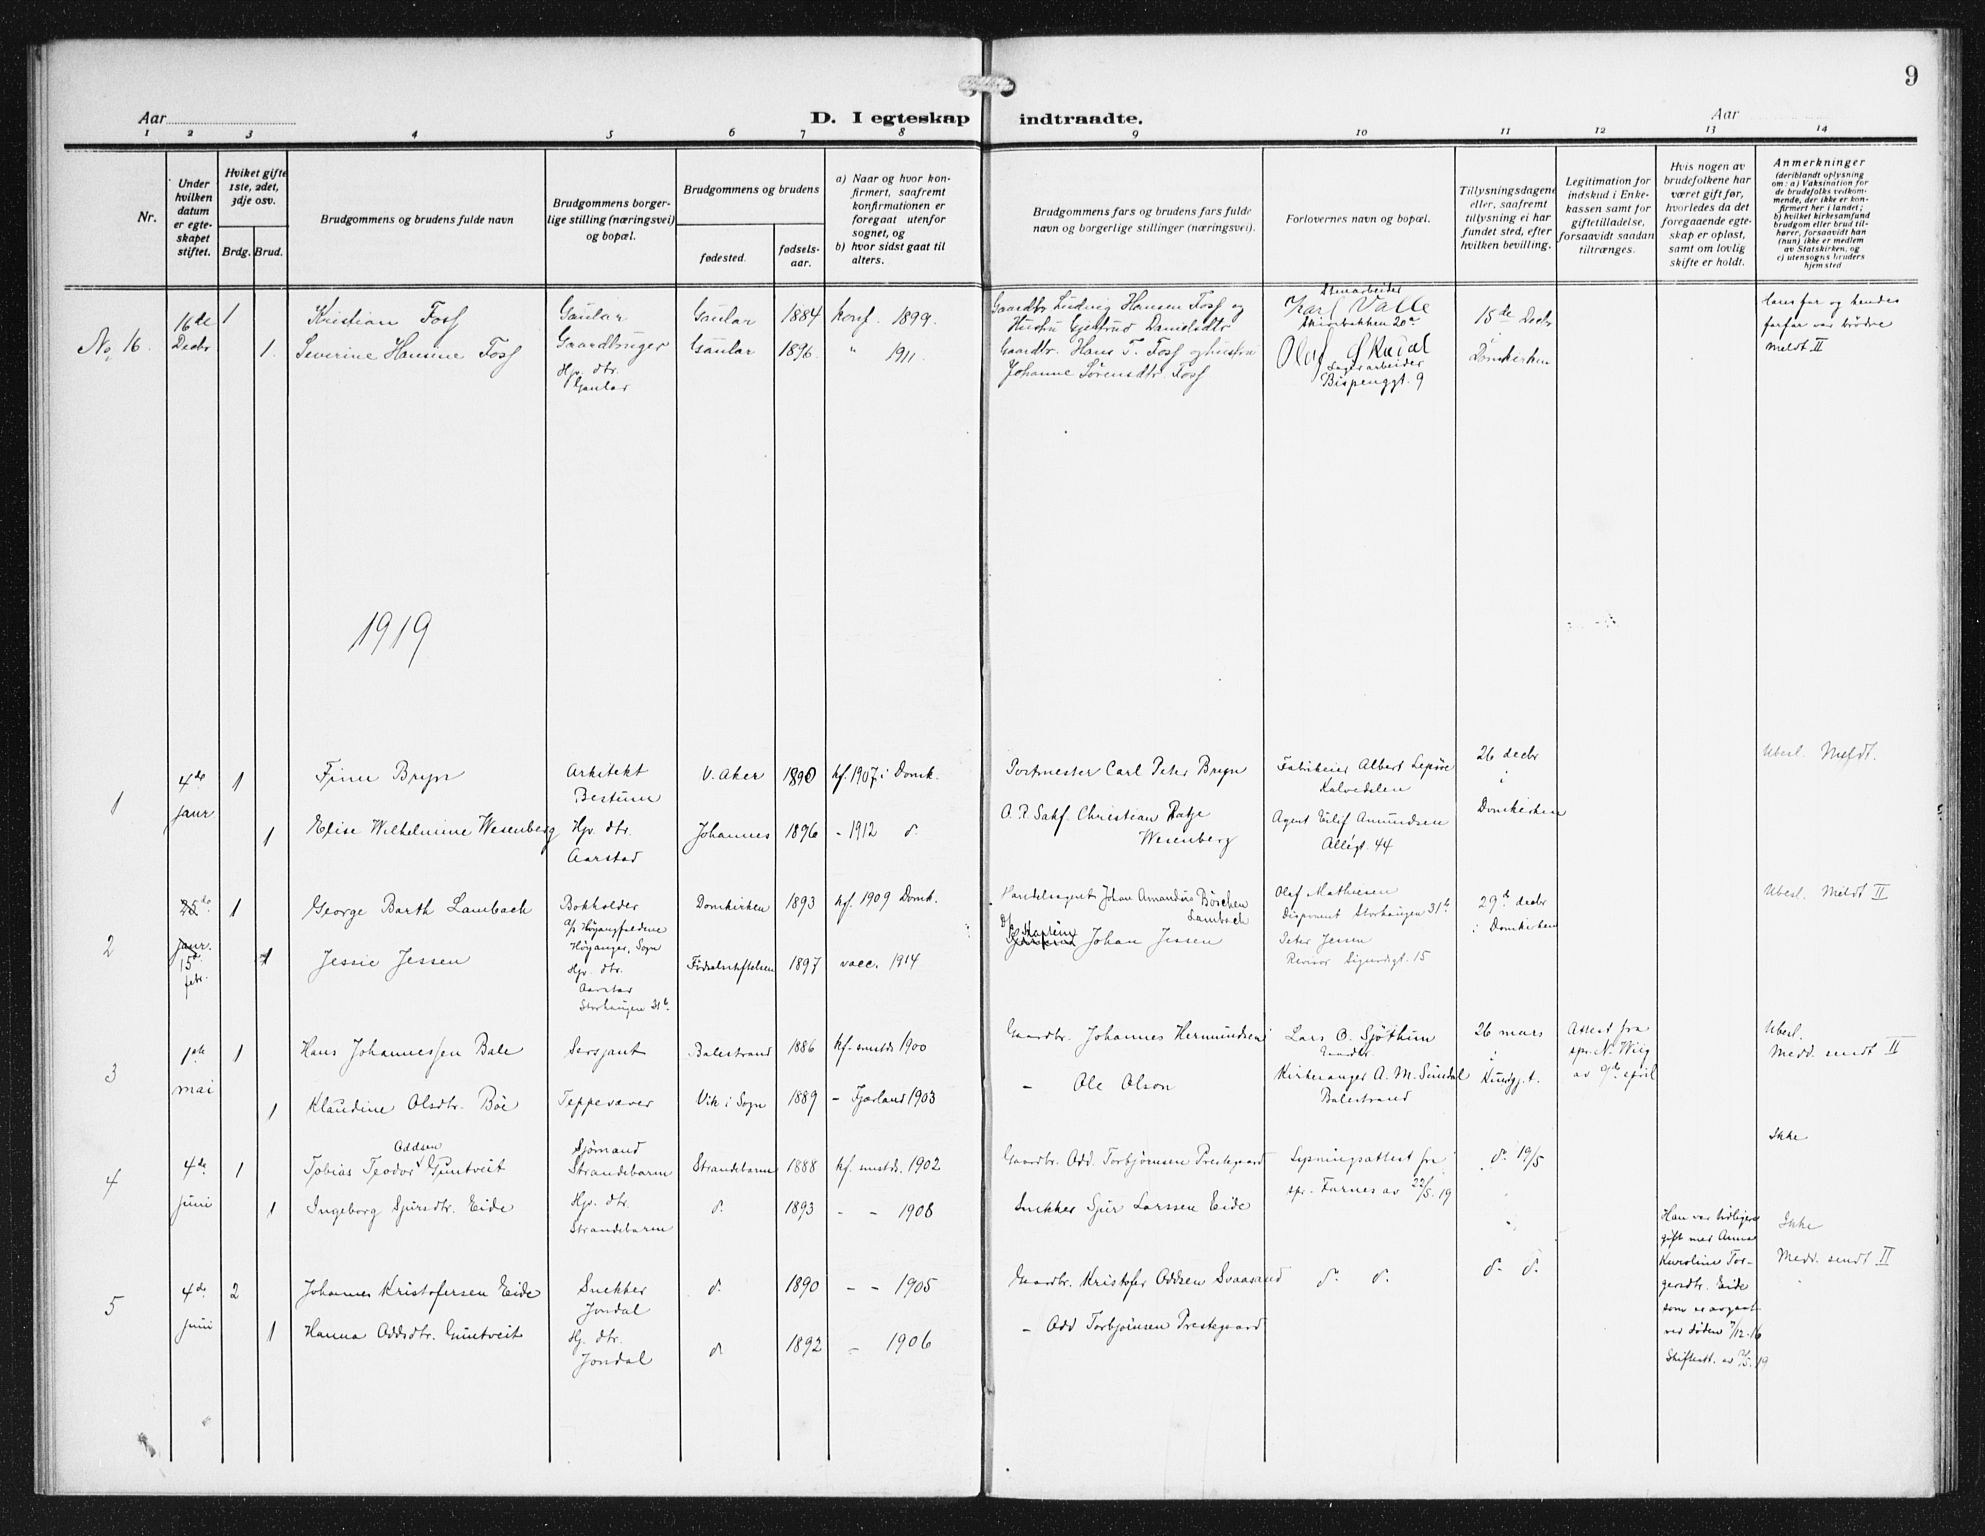 9
Aar
D. I egteskap indtraadte.
Aar
1 2 3 4 5 6 7 8 9 10 11 12 13 14
Nr.
Under hvilken datum er egteskapet stiftet.
Hvilket gifte 1ste, 2det, 3dje osv.
Brdg. Brud.
Brudgommens og brudens fulde navn
Brudgommens borgerlige stilling (næringsvei) og bopæl.
Brudgommens og brudens
fødested.
fødselsaar.
a) Naar og hvor konfirmert, saafremt konfirmationen er foregaat utenfor sognet, og
b) hvor sidst gaat til alters.
Brudgommens fars og brudens fars fulde navn og borgerlige stillinger (næringsvei).
Forlovernes navn og bopæl.
Tillysningsdagene eller, saafremt tillysning ei har fundet sted, efter hvilken bevilling.
Legitimation for indskud i Enkekassen samt for giftetilladelse, forsaavidt saadan tiltrænges.
Hvis nogen av brudefolkene har været gift før, hvorledes da det foregaaende egteskap er opløst, samt om lovlig skifte er holdt.
Anmerkninger (deriblandt oplysning om: a) Vaksination for de brudefolks vedkommende, der ikke er konfirmert her i landet; b) hvilket kirkesamfund brudgom eller brud tilhører, forsaavidt han (hun) ikke er medlem av Statskirken, og c) utensogns bruders hjemsted
No 16. 16de Decbr
1 Kristian Foss Gaular Gaardbruger Gaular 1884 konf. 1899.
Gaardbr Ludvig Hansen Foss og Hustru Gjertrud Danielsdtr
Stenarbeider Karl Valle Skivebakken 20a
15de Decbr
hans far og hendes farfar var brødre
Meldt II
1. Severine Hansine Foss Hjv. dtr. Gaular Gaular 1896. " 1911.
Gaardbr. Hans T. Foss og hustru Johanne Sørensdtr. Foss
Olaf Skadal Lagerarbeider Bispenggt. 9
i Domkirken
1919
1 4de januar
1 Finn Bryn Arkitekt Bestum V. Aker 1890 kf. 1907 i Domk.
Postmester Carl Peter Bryn
Fabrikeier Albert Lepsøe Kalvedalen
26 decbr i Domkirken
Uberl. Meldt.
1 Elise Wilhelmine Wesenberg Hjv. dtr. Aarstad Johannes 1896 - 1912 do.
O. R. Sakf. Christian Ratje Wesenberg
Agent Eilif Amundsen Allégt. 44
2 25de januar. 15d febr.
1 George Barth Lambach Bokholder a/s Høyangfaldene Høyanger, Sogn Domkirken 1893 kf. 1909 Domk.
Handelsagent Johan Amandus Böschen Lambach
Olaf Mathiesen Disponent Storhaugen 31b
29d decbr i Domkirken
Uberl. Meldt II
1 Jessie Jessen Hjv. dtr. Aarstad Storhaugen 31b. Fødselsstiftelsen 1897 vacc. 1914
Kaptein Johan Jessen
Peter Jessen Revisor Sigurdsgt. 15
3 1ste mai
1 Hans Johannessen Bale Sersjant Balestrand 1886 kf. smstds 1900
Gaardbr. Johannes Hermundsen
Lars O. Sjøthun
26 mars i Kinsgj.t.
Attest fra spr. N. Wiig av 9de april
Uberl. Medd. sendt II
1 Klaudine Olsdtr. Böe Teppevæver Vik i Sogn 1889 - Fjærland 1903
- Ole Olson
Kirkesanger A. M. Sundal Balestrand
4 4de juni
1 Tobias Teodor Addsen Guntveit Sjømand Strandebarm Strandebarm 1888 kf. smstds. 1902
Gaardbr. Odd Torbjørnsen Prestegaard
Lysningsattest fra spr. Farnes av 22/5. 19
do. 19/5
Ikke
1 Ingeborg Sjursdtr. Eide Hjv. dtr. Strandebarm do. 1893 - - 1908
Snekker Sjur Larssen Eide
5 4de juni
2 Johannes Kristofersen Eide Snekker Jondal do. 1890 - - 1905
Gaardbr. Kristofer Oddsen Svaasand
do. do.
do. do.
Han var tidligere gift med Anna Karoline Torgersdtr. Eide som er avgaat ved døden 7/12. 16 Skifteatt. av 2/5. 19
Ikke
Medd. sendt II
1 Hanna Oddsdtr. Guntveit Hj. dtr. Jondal do. 1892 - 1906
- Odd Torbjørnsen Prestegaard